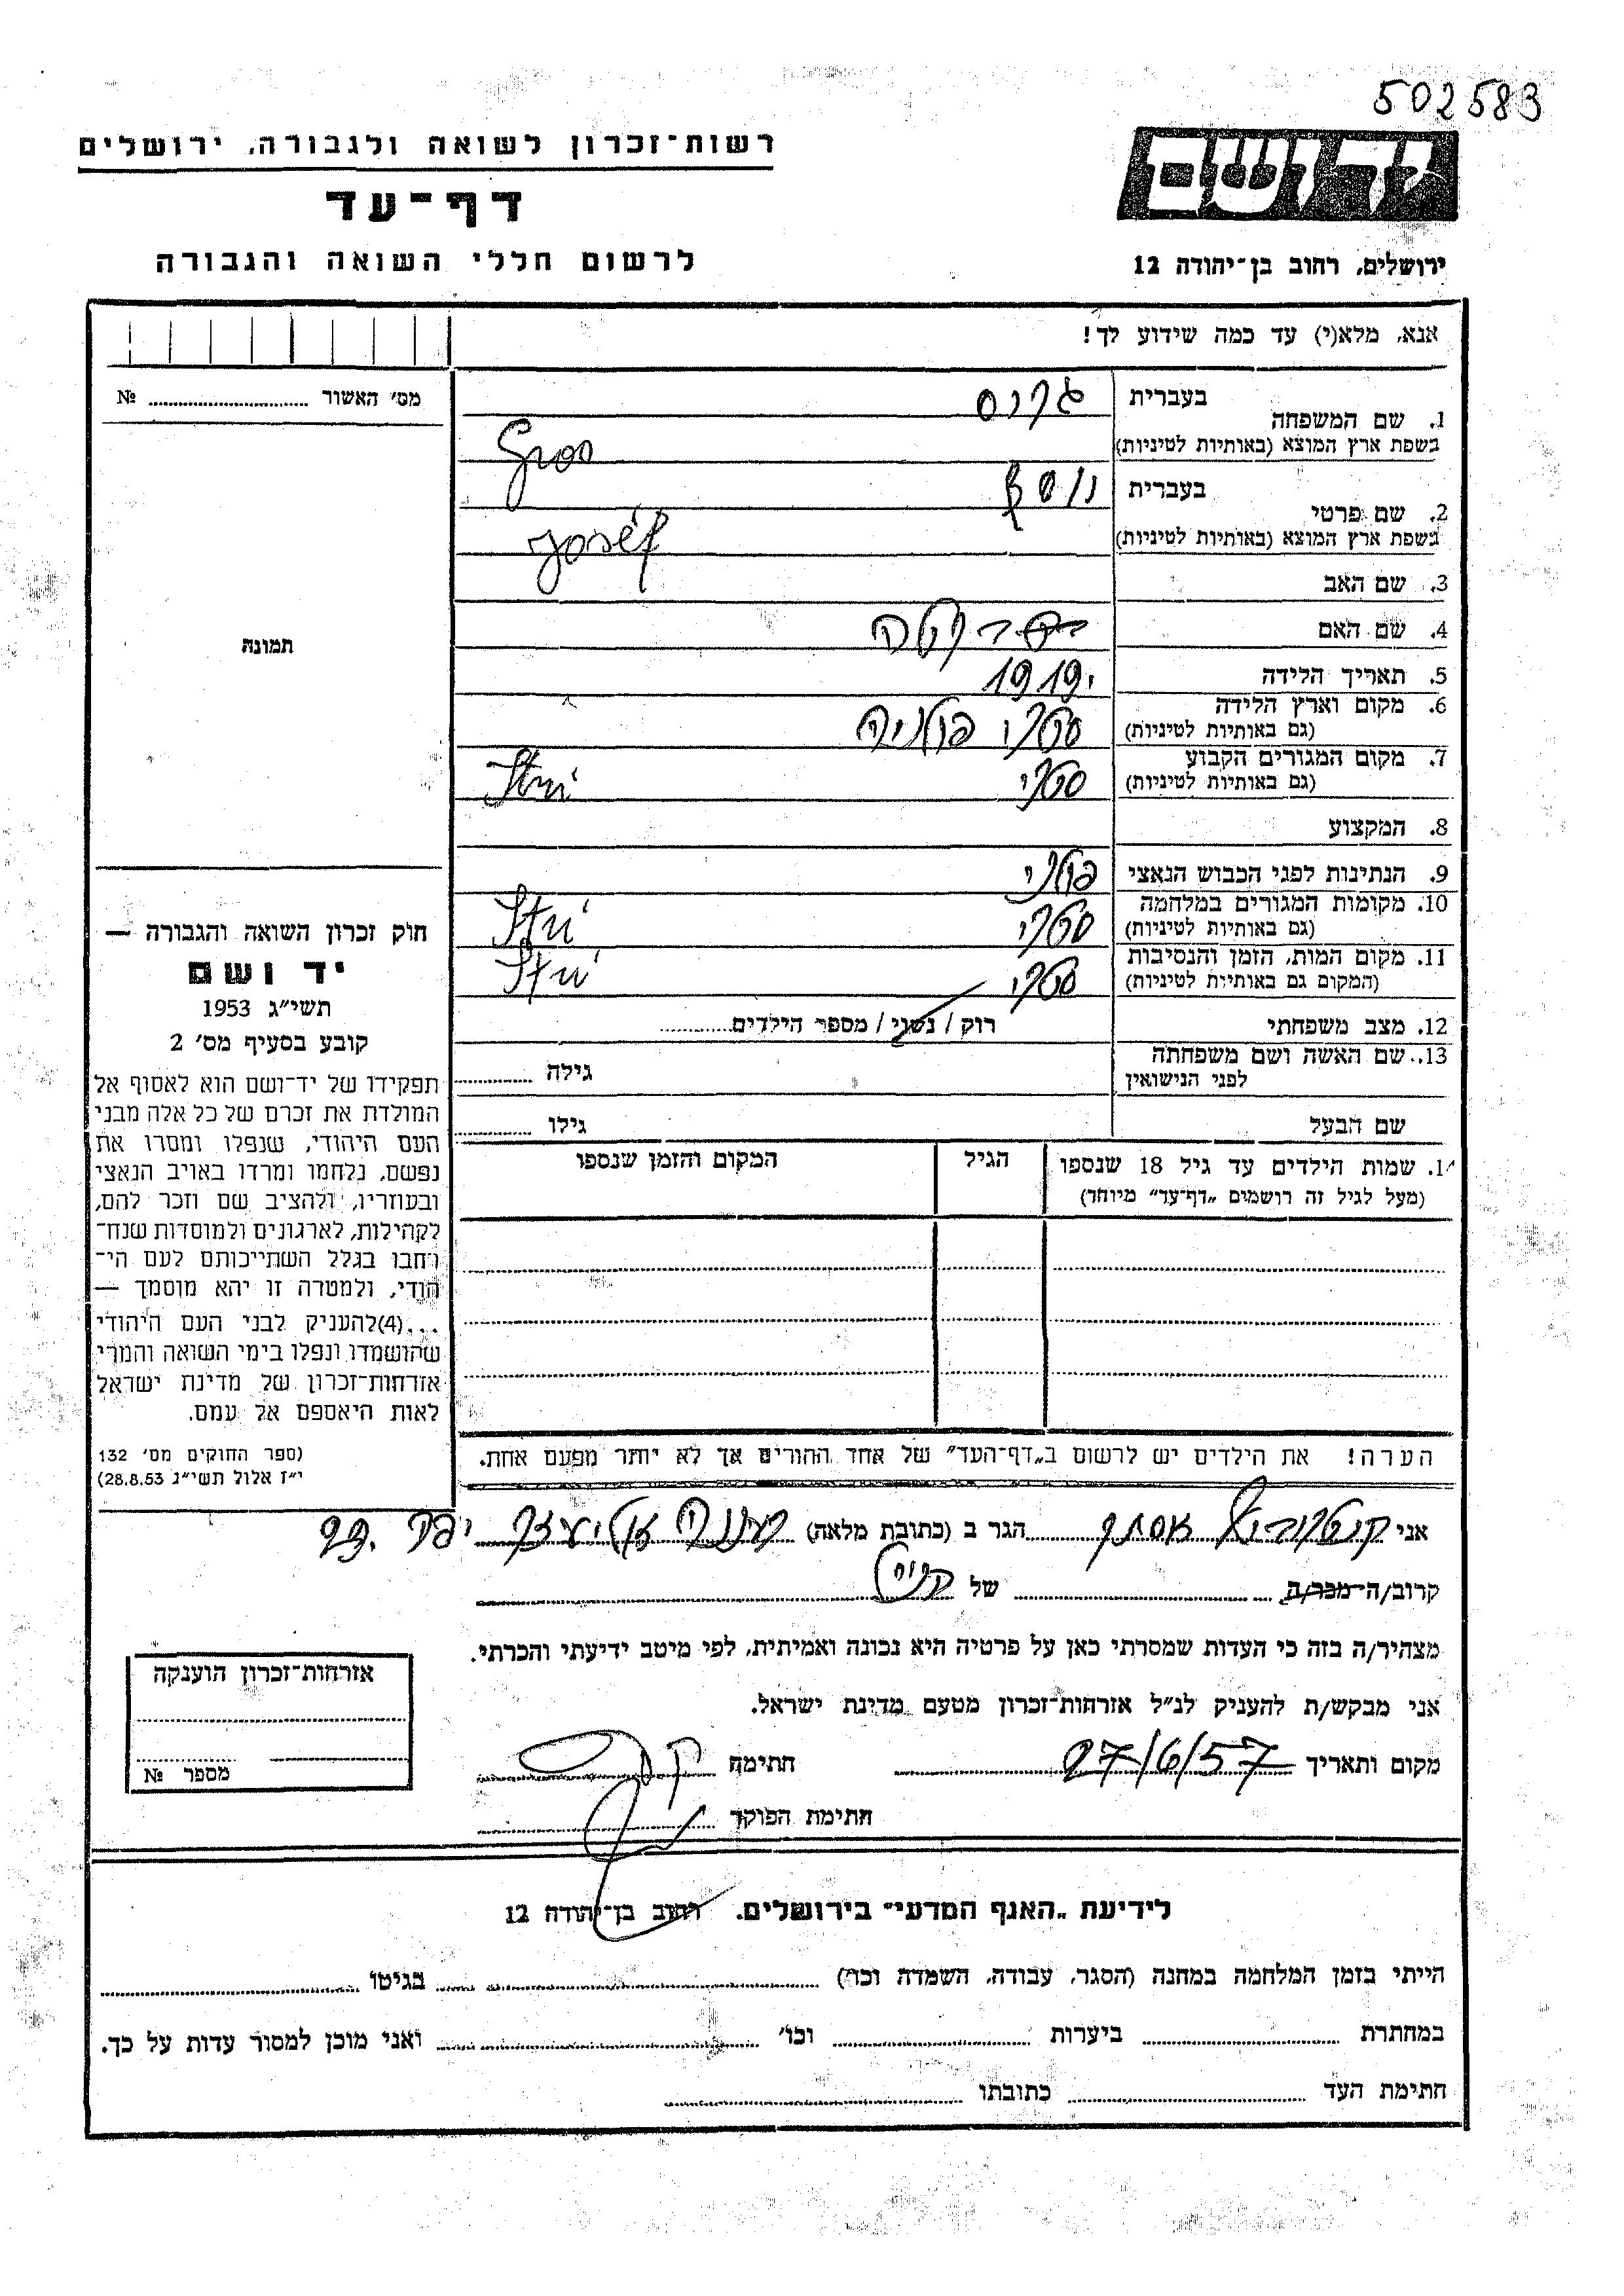 502583
יד ושם
ירושלים, רחוב בן־יהודה 12
רשות־זכרון לשואה ולגבורה, ירושלים
דף־עד
לרשום חללי השואה והגבורה
אנא, מלא(י) עד כמה שידוע לך!
מס׳ האשור ........ №
תמונה
1. שם המשפחה בעברית גרוס
בשפת ארץ המוצא (באותיות לטיניות) Gros
2. שם פרטי בעברית יוסף
בשפת ארץ המוצא (באותיות לטיניות) Josef
3. שם האב
4. שם האם
5. תאריך הלידה 1919
6. מקום וארץ הלידה (גם באותיות לטיניות) סטרי פולניה
7. מקום המגורים הקבוע (גם באותיות לטיניות) סטרי Stri
8. המקצוע
9. הנתינות לפני הכבוש הנאצי פולני
10. מקומות המגורים במלחמה (גם באותיות לטיניות) סטרי Stri
11. מקום המות, הזמן והנסיבות (המקום גם באותיות לטיניות) סטרי Stri
12. מצב משפחתי רוק / נשוי / מספר הילדים........
13. שם האשה ושם משפחתה לפני הנישואין גילה ........
שם הבעל גילו ........
14. שמות הילדים עד גיל 18 שנספו הגיל המקום והזמן שנספו
(מעל לגיל זה רושמים „דף־עד” מיוחד)
הערה! את הילדים יש לרשום ב„דף־העד” של אחד ההורים אך לא יותר מפעם אחת.
חוק זכרון השואה והגבורה —
יד ושם
תשי״ג 1953
קובע בסעיף מס׳ 2
תפקידו של יד־ושם הוא לאסוף אל
המולדת את זכרם של כל אלה מבני
העם היהודי, שנפלו ומסרו את
נפשם, נלחמו ומרדו באויב הנאצי
ובעוזריו, ולהציב שם וזכר להם,
לקהילות, לארגונים ולמוסדות שנח־
רחבו בגלל השתייכותם לעם הי־
הודי, ולמטרה זו יהא מוסמך —
...(4)להעניק לבני העם היהודי
שהושמדו ונפלו בימי השואה והמרי
אזרחות־זכרון של מדינת ישראל
לאות היאספם אל עמם.
(ספר החוקים מס׳ 132
י״ז אלול תשי״ג 28.8.53)
אני אסתר הגר ב (כתובת מלאה)
קרוב/ה־מכר/ה ........ של
מצהיר/ה בזה כי העדות שמסרתי כאן על פרטיה היא נכונה ואמיתית, לפי מיטב ידיעתי והכרתי.
אני מבקש/ת להעניק לנ״ל אזרחות־זכרון מטעם מדינת ישראל.
מקום ותאריך 27/6/57 חתימה
חתימת הפוקד
אזרחות־זכרון הוענקה
מספר №
לידיעת „האגף המדעי” בירושלים. רחוב בן־יהודה 12
הייתי בזמן המלחמה במחנה (הסגר, עבודה, השמדה וכו׳) ........ בגיטו ........
במחתרת ........ ביערות ........ וכו׳ ........ ואני מוכן למסור עדות על כך.
חתימת העד ........ כתובתו ........